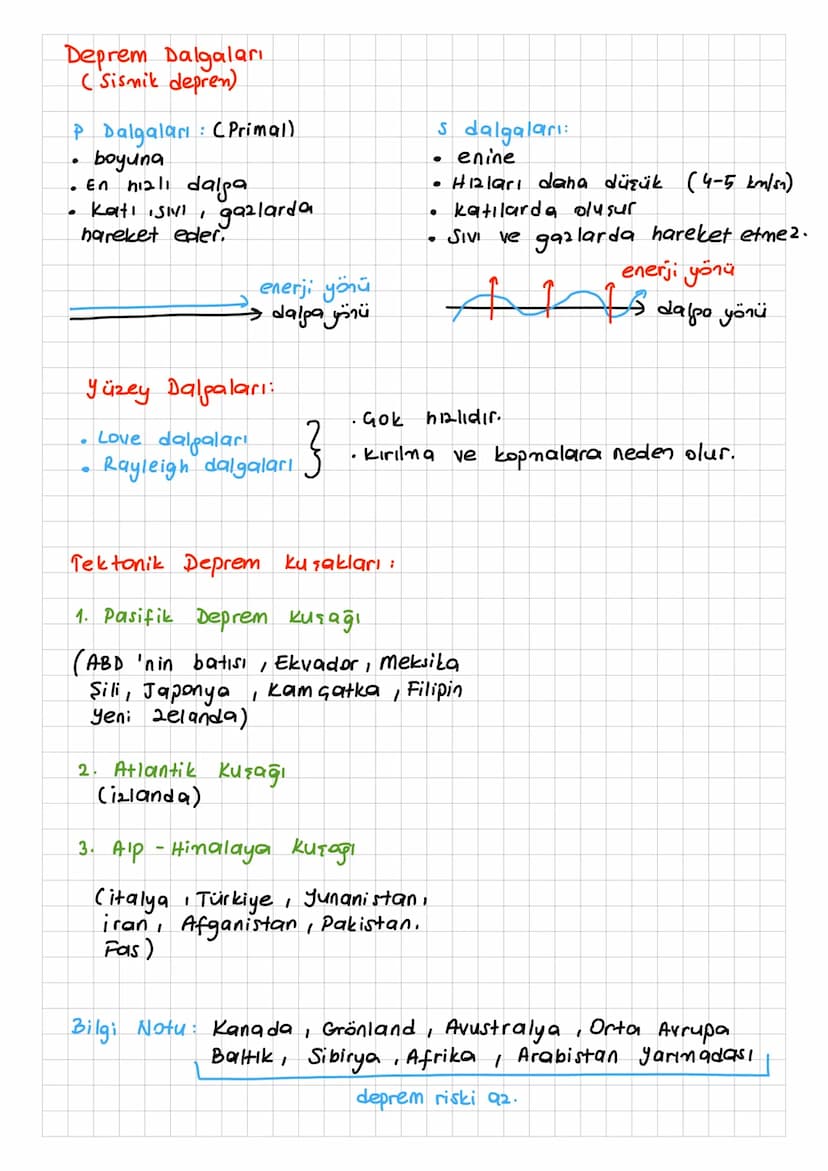 Deprem Dalgaları
(Sismik deprem)
P Dalgaları : (Primal)
• boyuna
• En hızlı dalga
• Katı, sıvı, gazlarda
hareket eder.
enerji yönü
dalga yönü
S dalgaları:
• enine
• Hızları daha düşük (4-5 km/sn)
• Katılarda oluşur
• Sıvı ve gazlarda hareket etmez.
enerji yönü
dalga yönü
Yüzey Dalgaları:
• Love dalgaları
• Rayleigh dalgaları
• Çok hızlıdır.
• Kırılma ve kopmalara neden olur.
Tektonik Deprem Kuşakları :
1. Pasifik Deprem Kuşağı
(ABD 'nin batısı, Ekvador, Meksika
Şili, Japonya, Kamçatka, Filipin
Yeni Zelanda)
2. Atlantik Kuşağı
(izlanda)
3. Alp - Himalaya Kuşağı
(italya, Türkiye, Yunanistan,
iran, Afganistan, Pakistan.
Fas)
Bilgi Notu: Kanada, Grönland, Avustralya, Orta Avrupa
Baltık, Sibirya, Afrika, Arabistan Yarımadası
deprem riski az.